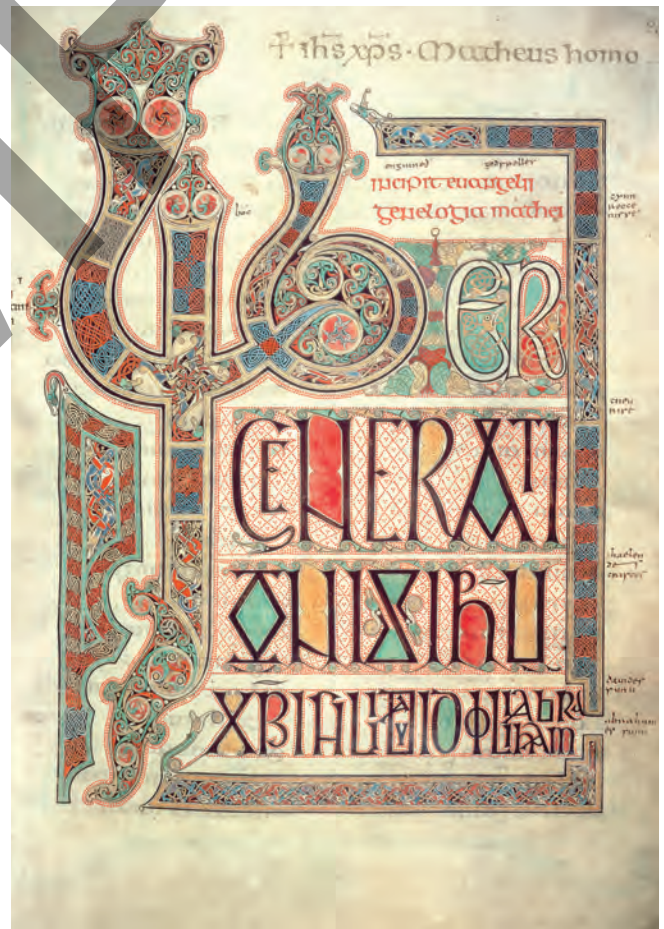 + ihs xps · Matheus homo
incipit euangelii
genelogia mathei
boc
LIBER
GENERATI
ONIS IHU
XPI FILII DAUID FILII ABRAHAM